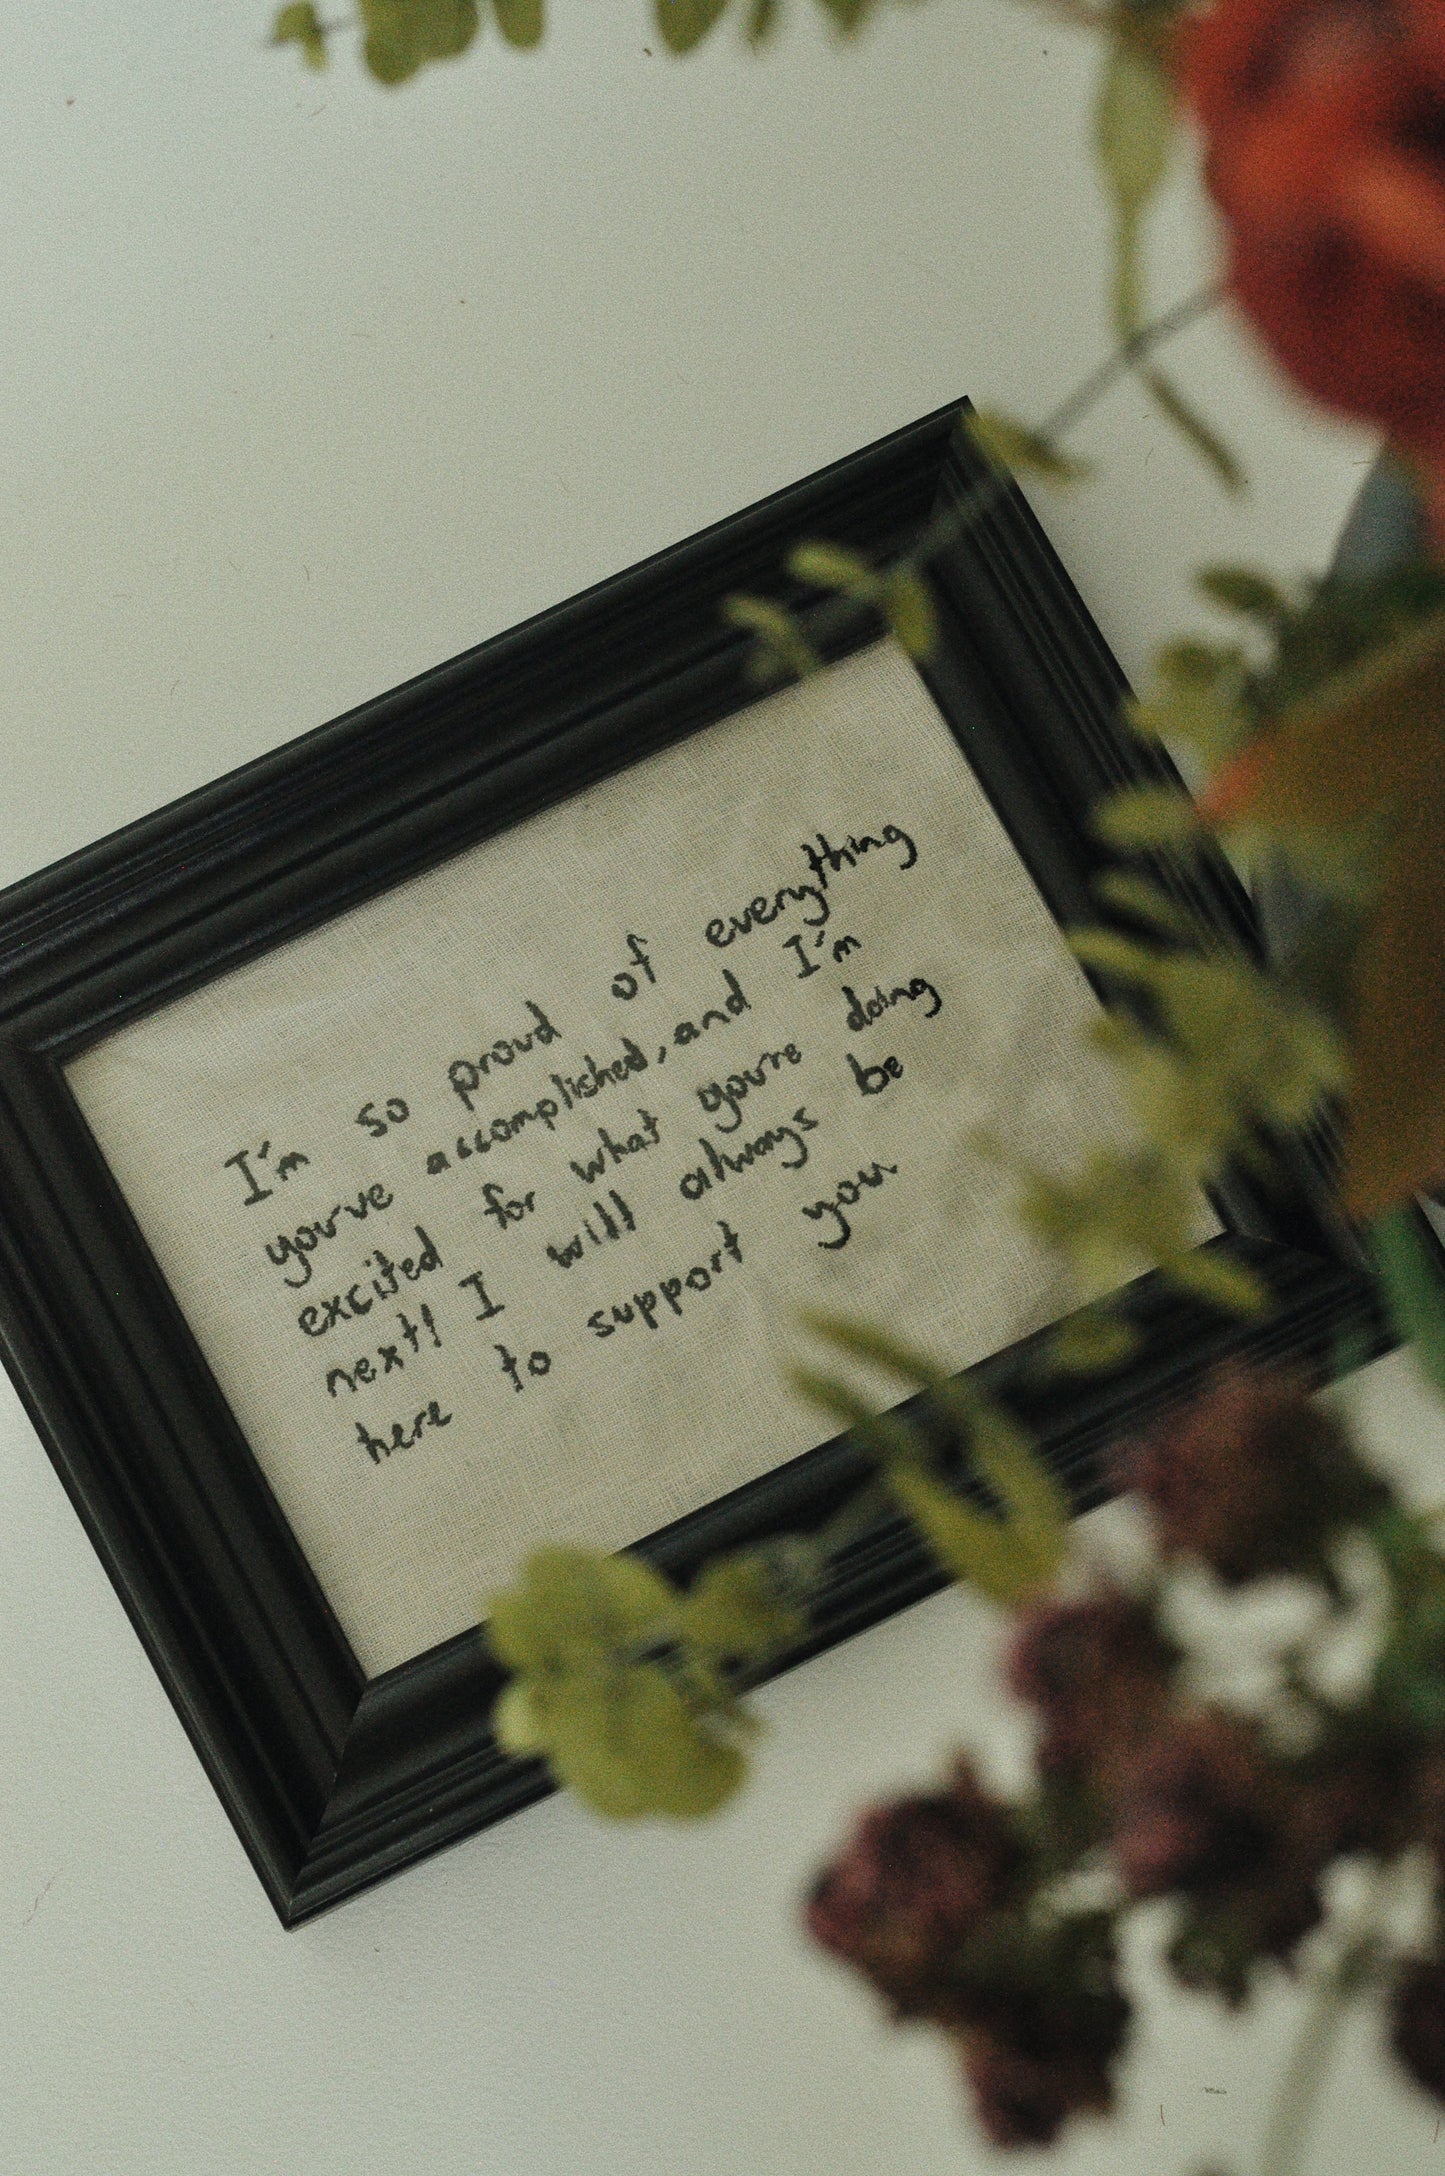 I'm so proud of everything
you've accomplished, and I'm
excited for what you're doing
next! I will always be
here to support you